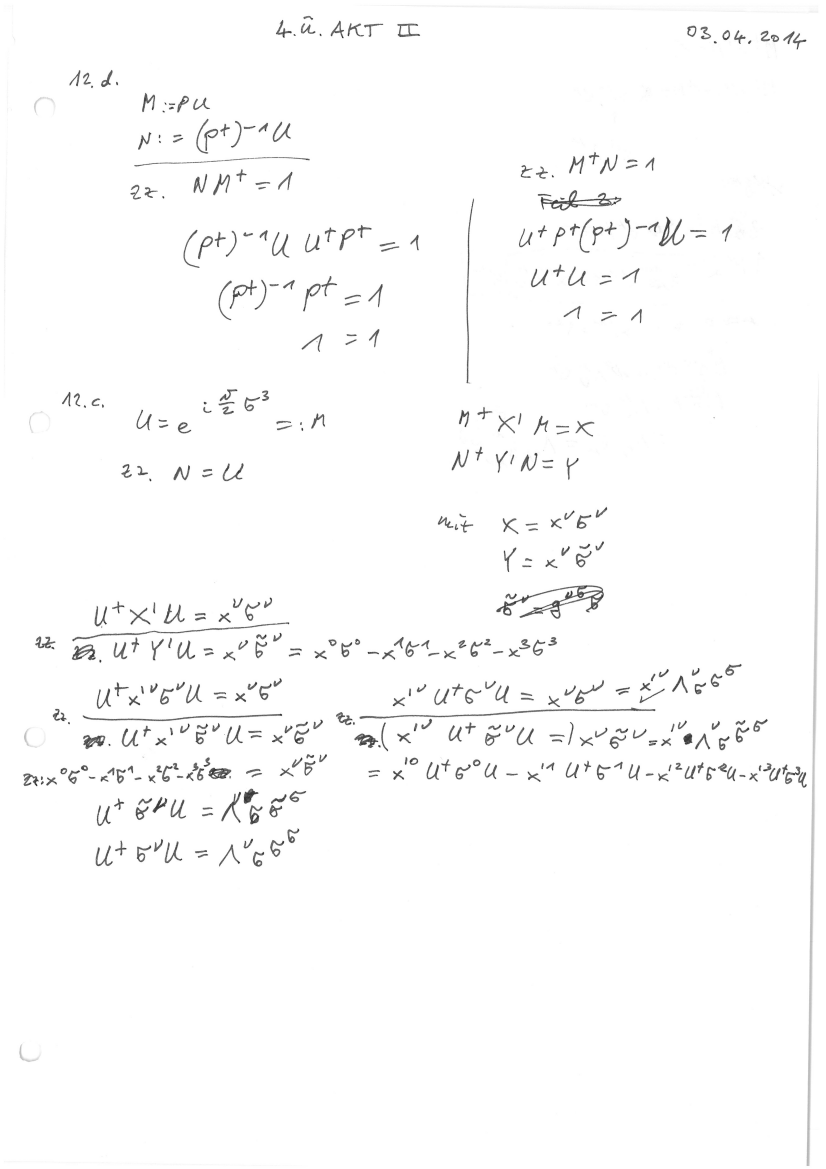 4.Ü. AKT II
03.04.2014
12.d.
M:=PU
N:=(P†)⁻¹U
zz. NM† = 1
(P†)⁻¹U U†P† = 1
(P†)⁻¹ P† = 1
1 = 1
zz. M†N = 1
Teil 2.
U†P†(P†)⁻¹U = 1
U†U = 1
1 = 1
12.c.
U = e^{i ϑ/2 σ³} =: M
zz. N = U
M†X'M = X
N†Y'N = Y
mit X = x^ν σ^ν
Y = x^ν σ̃^ν
U†X'U = x^ν σ^ν
zz. U†Y'U = x^ν σ̃^ν = x⁰σ⁰ - x¹σ¹ - x²σ² - x³σ³
U†x'^ν σ^ν U = x^ν σ^ν
zz. U†x'^ν σ̃^ν U = x^ν σ̃^ν
zz: x⁰σ⁰ - x¹σ¹ - x²σ² - x³σ³ = x^ν σ̃^ν
U† σ̃^μ U = Λ^ν_σ σ̃^σ
U† σ^ν U = Λ^ν_σ σ^σ
x'^ν U†σ^ν U = x^ν σ^ν = x'^ν Λ^ν_σ σ^σ
zz. (x'^ν U† σ̃^ν U =) x^ν σ̃^ν = x'^ν Λ^ν_σ σ̃^σ
= x'⁰ U†σ⁰U - x'¹ U†σ¹U - x'² U†σ²U - x'³ U†σ³U